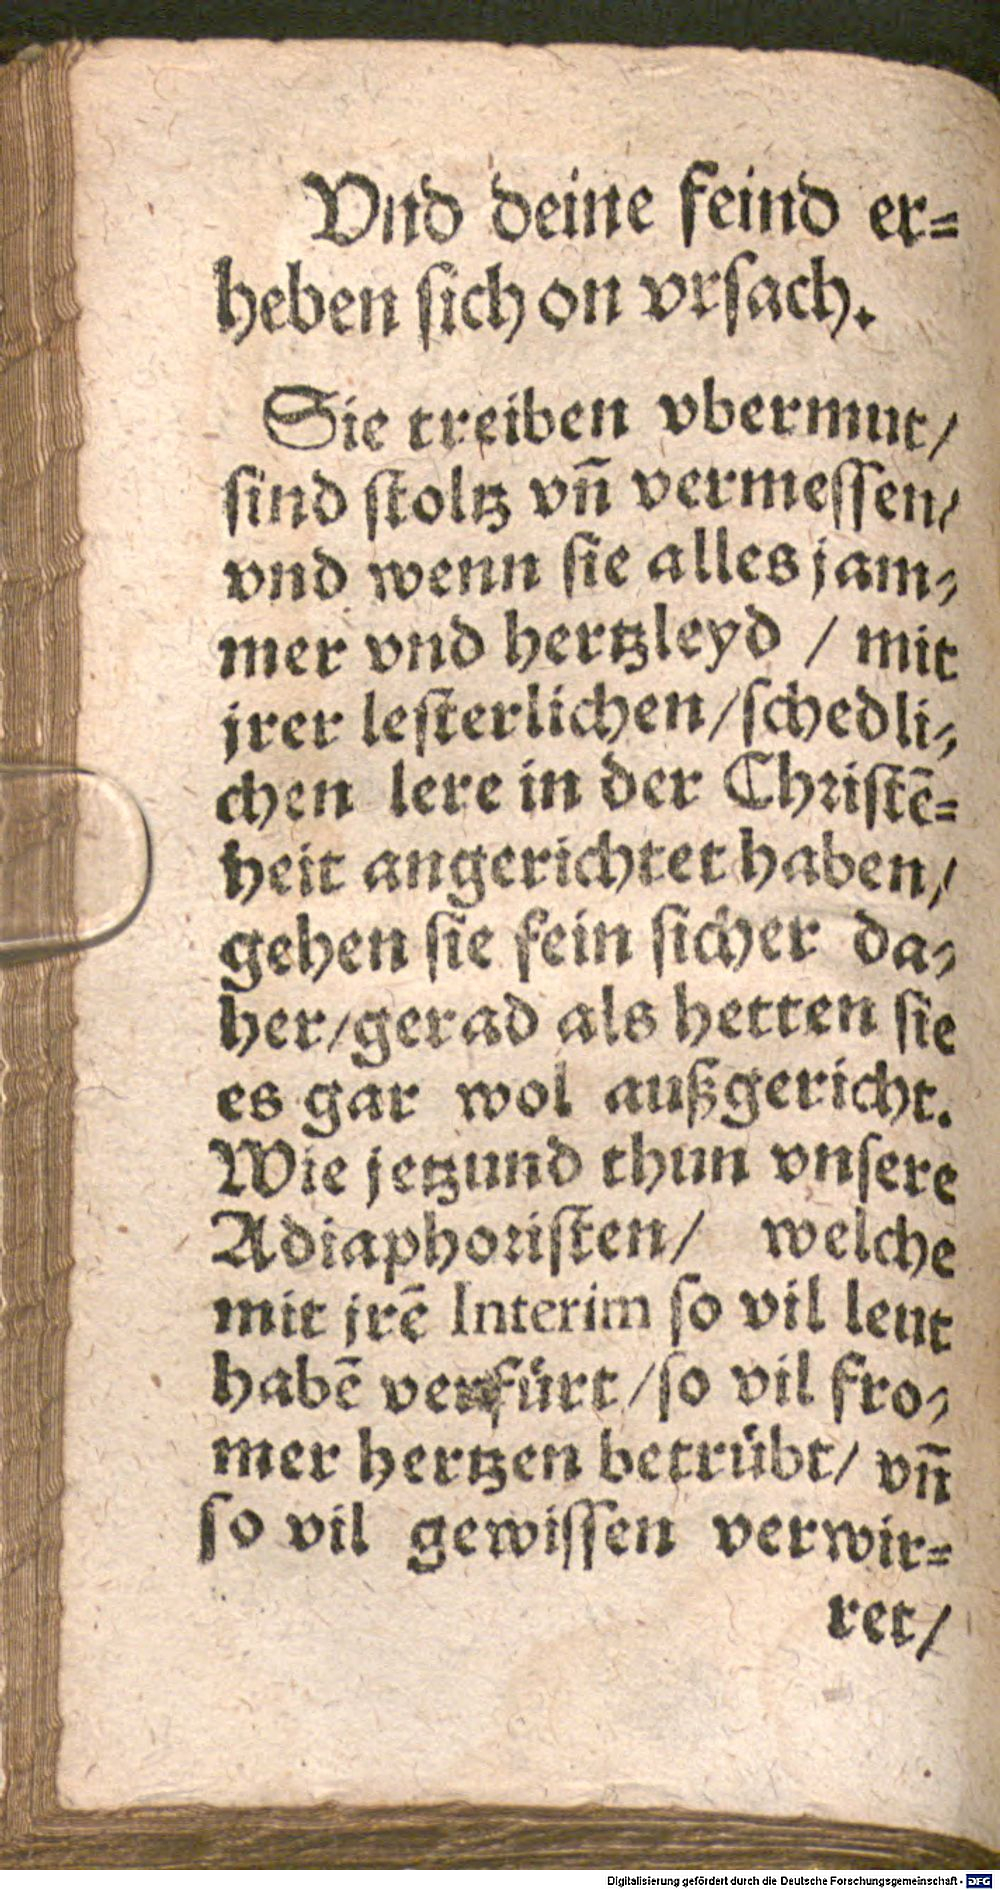 Vnd deine feind er⸗
heben ſich on vrſach.
Sie treiben vbermut/
ſind ſtoltz vñ vermeſſen/
vnd wenn ſie alles jam⸗
mer vnd hertzleyd / mit
jrer leſterlichen/ſchedli⸗
chen lere in der Chriſtē⸗
heit angerichtet haben/
gehen ſie fein ſicher da⸗
her/gerad als hetten ſie
es gar wol außgericht.
Wie jetzund thun vnſere
Adiaphoriſten/ welche
mit jrē Interim ſo vil leut
habē verfürt/ſo vil fro⸗
mer hertzen betrübt/ vñ
ſo vil gewiſſen verwir⸗
ret/
Digitalisierung gefördert durch die Deutsche Forschungsgemeinschaft - DFG